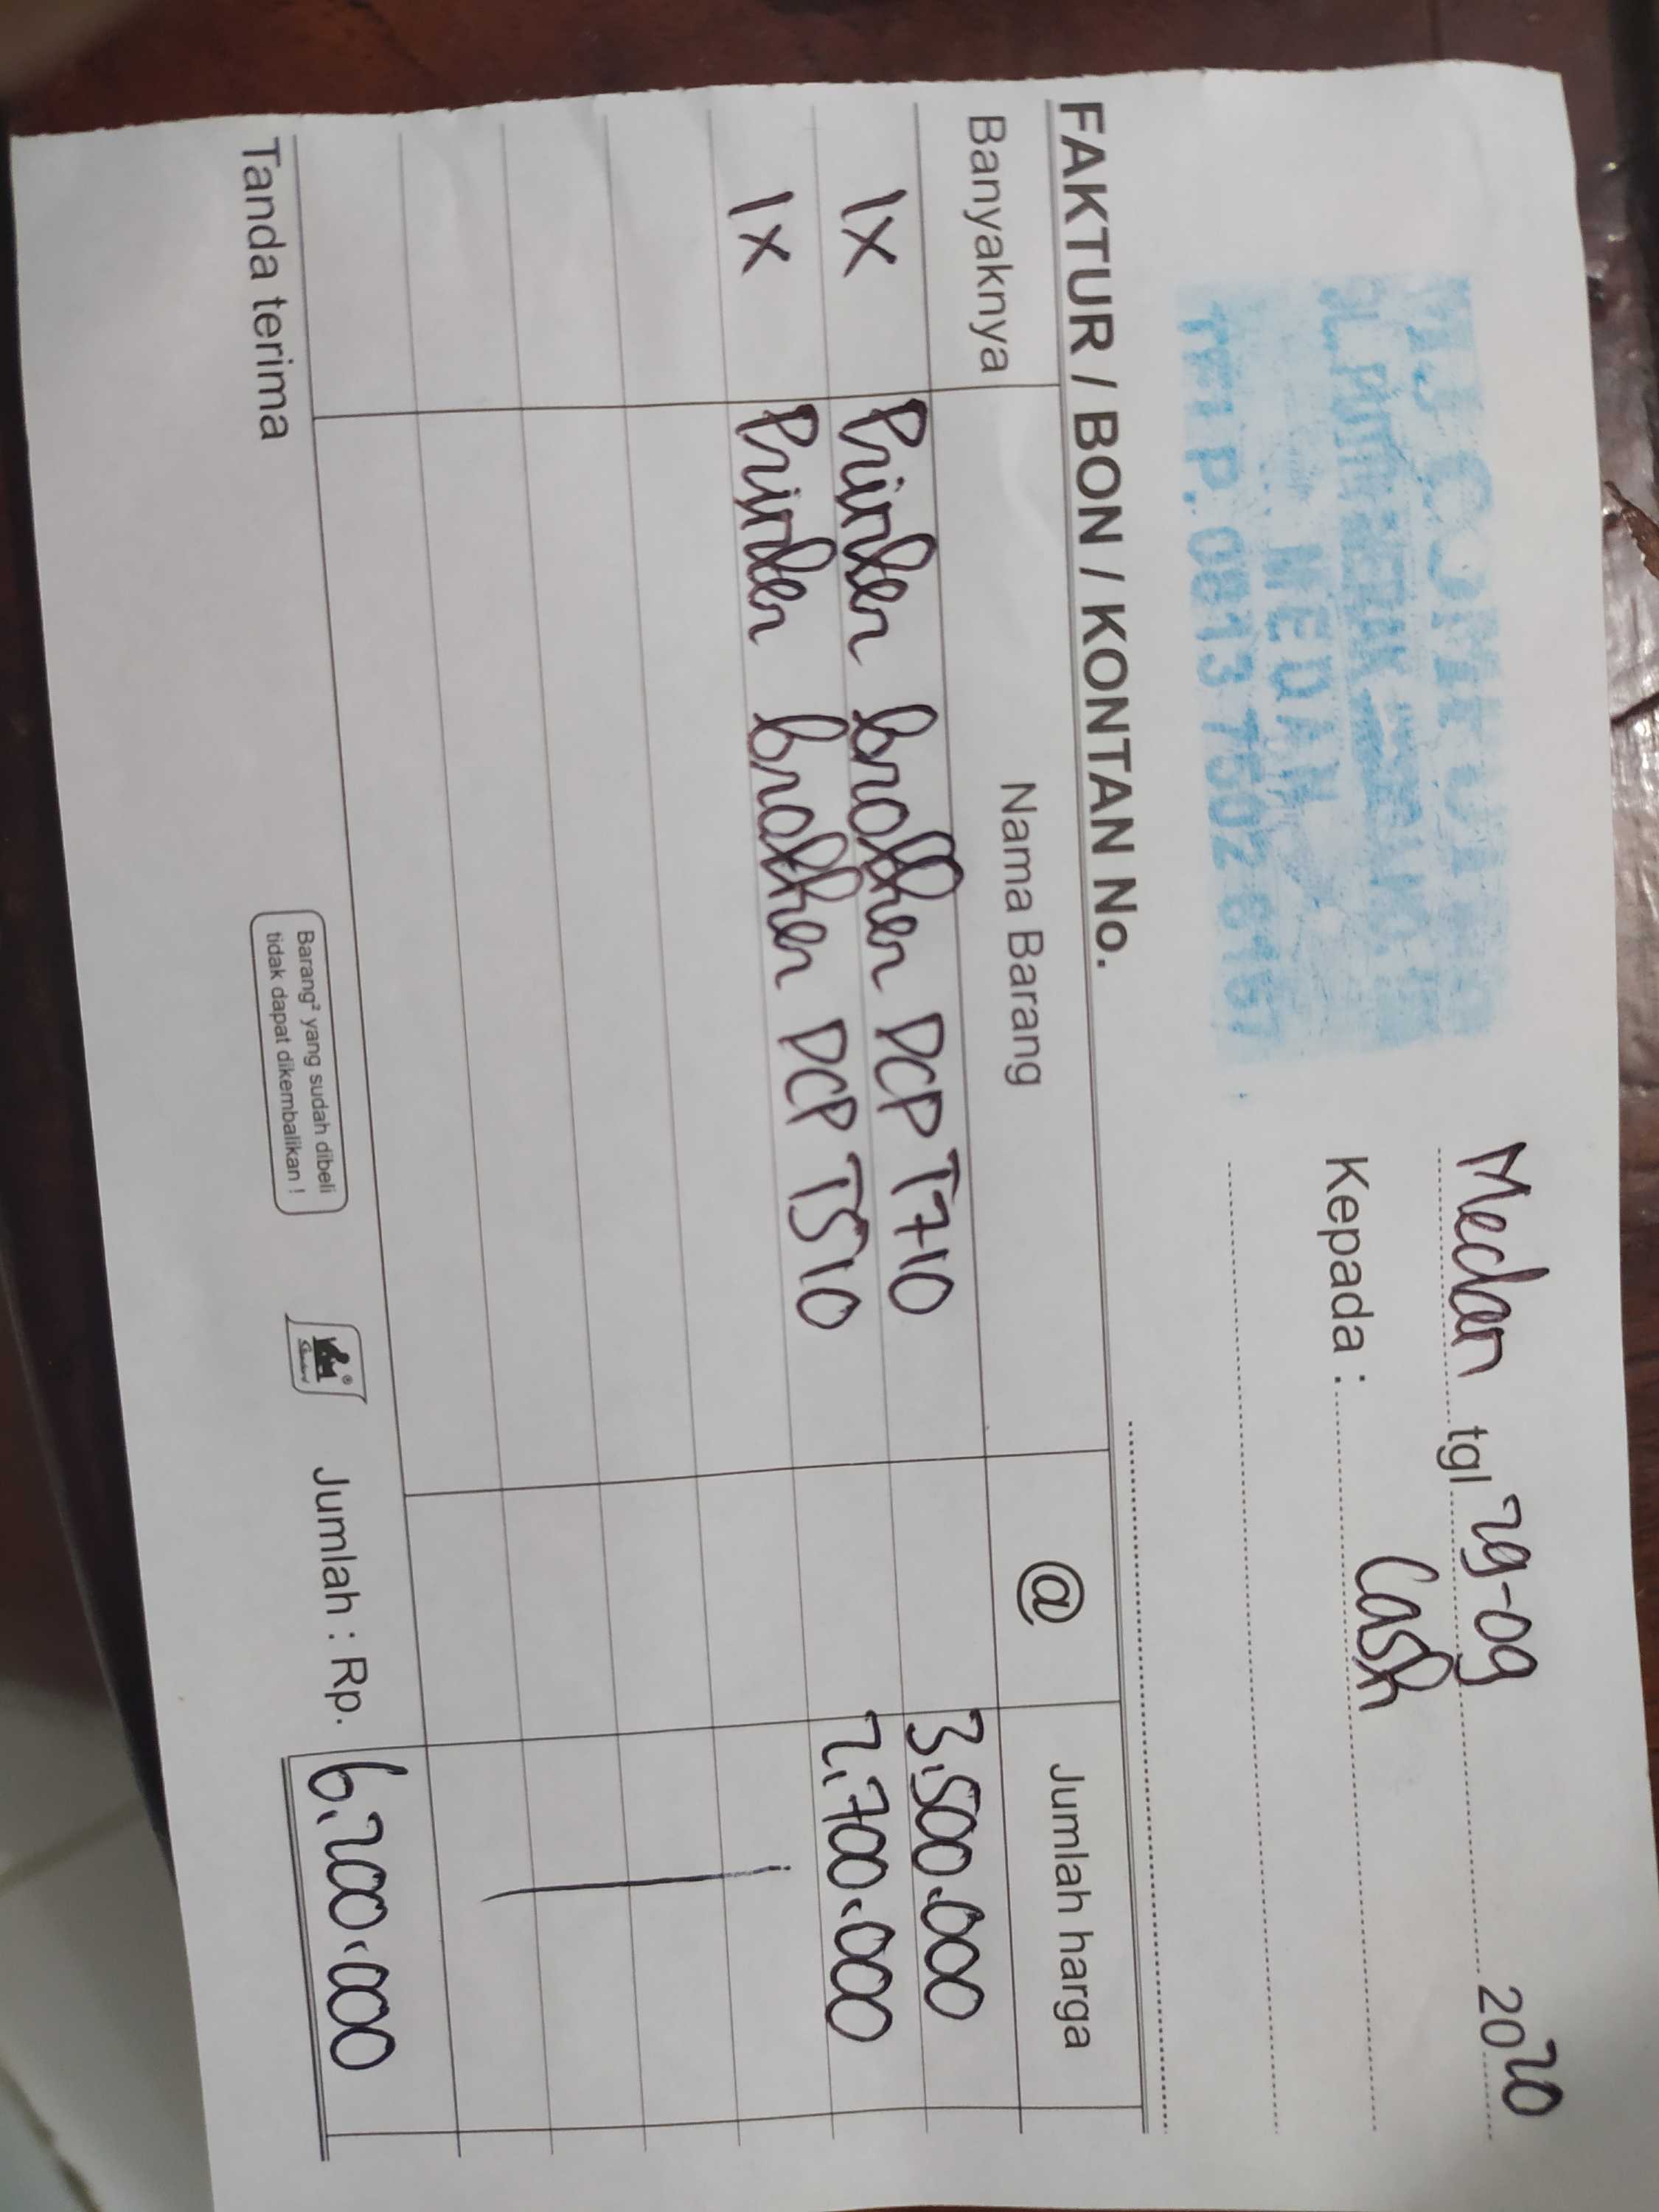 Medan tgl 29-09 2020
Kepada : Cash
MEDAN
TELP. 0813 7502 6167
FAKTUR / BON / KONTAN No.
Banyaknya Nama Barang @ Jumlah harga
1x Printer brother DCP T710 3.500.000
1x Printer brother DCP T510 2.700.000
Tanda terima
Barang² yang sudah dibeli
tidak dapat dikembalikan !
Jumlah : Rp. 6.200.000